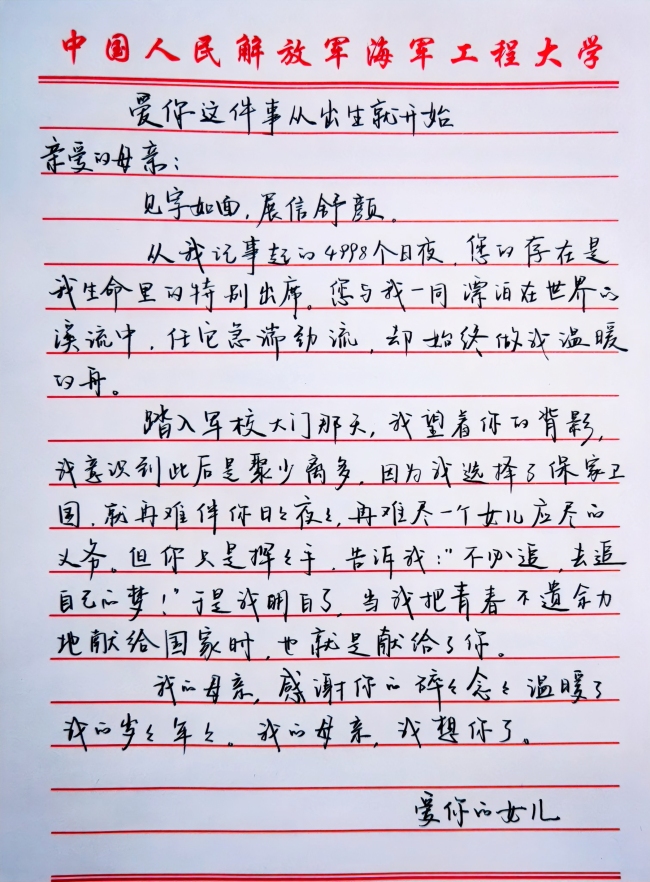 中国人民解放军海军工程大学
爱你这件事从出生就开始
亲爱的母亲：
见字如面，展信舒颜。
从我记事起的4998个日夜，您的存在是
我生命里的特别出席。您与我一同漂泊在世界的
溪流中，任它急湍劲流，却始终做我温暖
的舟。
踏入军校大门那天，我望着你的背影，
我意识到此后是聚少离多，因为我选择了保家卫
国，就再难伴你日々夜々，再难尽一个女儿应尽的
义务。但你只是挥々手，告诉我：“不必追，去追
自己的梦！”于是我明白了，当我把青春不遗余力
地献给国家时，也就是献给了你。
我的母亲，感谢你的碎々念々温暖了
我的岁々年々。我的母亲，我想你了。
爱你的女儿